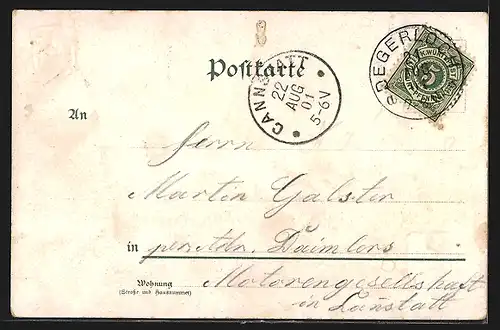 Postkarte
CANNSTATT
22
AUG
01
5-6V
DEGERLOCH
5
An
Herrn
Martin Galster
in per Adr. Daimlers
Motorengesellschaft
in Canstatt
Wohnung
(Straße und Hausnummer)